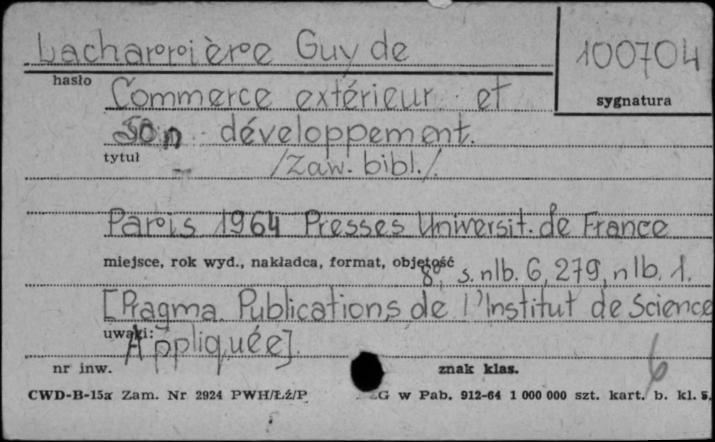 Lacharrière Guy de
100704
hasło
sygnatura
Commerce extérieur et
son développement.
tytuł
/Zaw. bibl./.
Paris 1964 Presses Universit. de France
miejsce, rok wyd., nakładca, format, objętość
8°, s. nlb. 6, 279, nlb. 1.
[Pragma Publications de l'Institut de Science
uwagi:
Appliquée].
nr inw.
znak klas.
6
CWD-B-15a Zam. Nr 2924 PWH/Łź/P
G w Pab. 912-64 1 000 000 szt. kart. b. kl. 5.